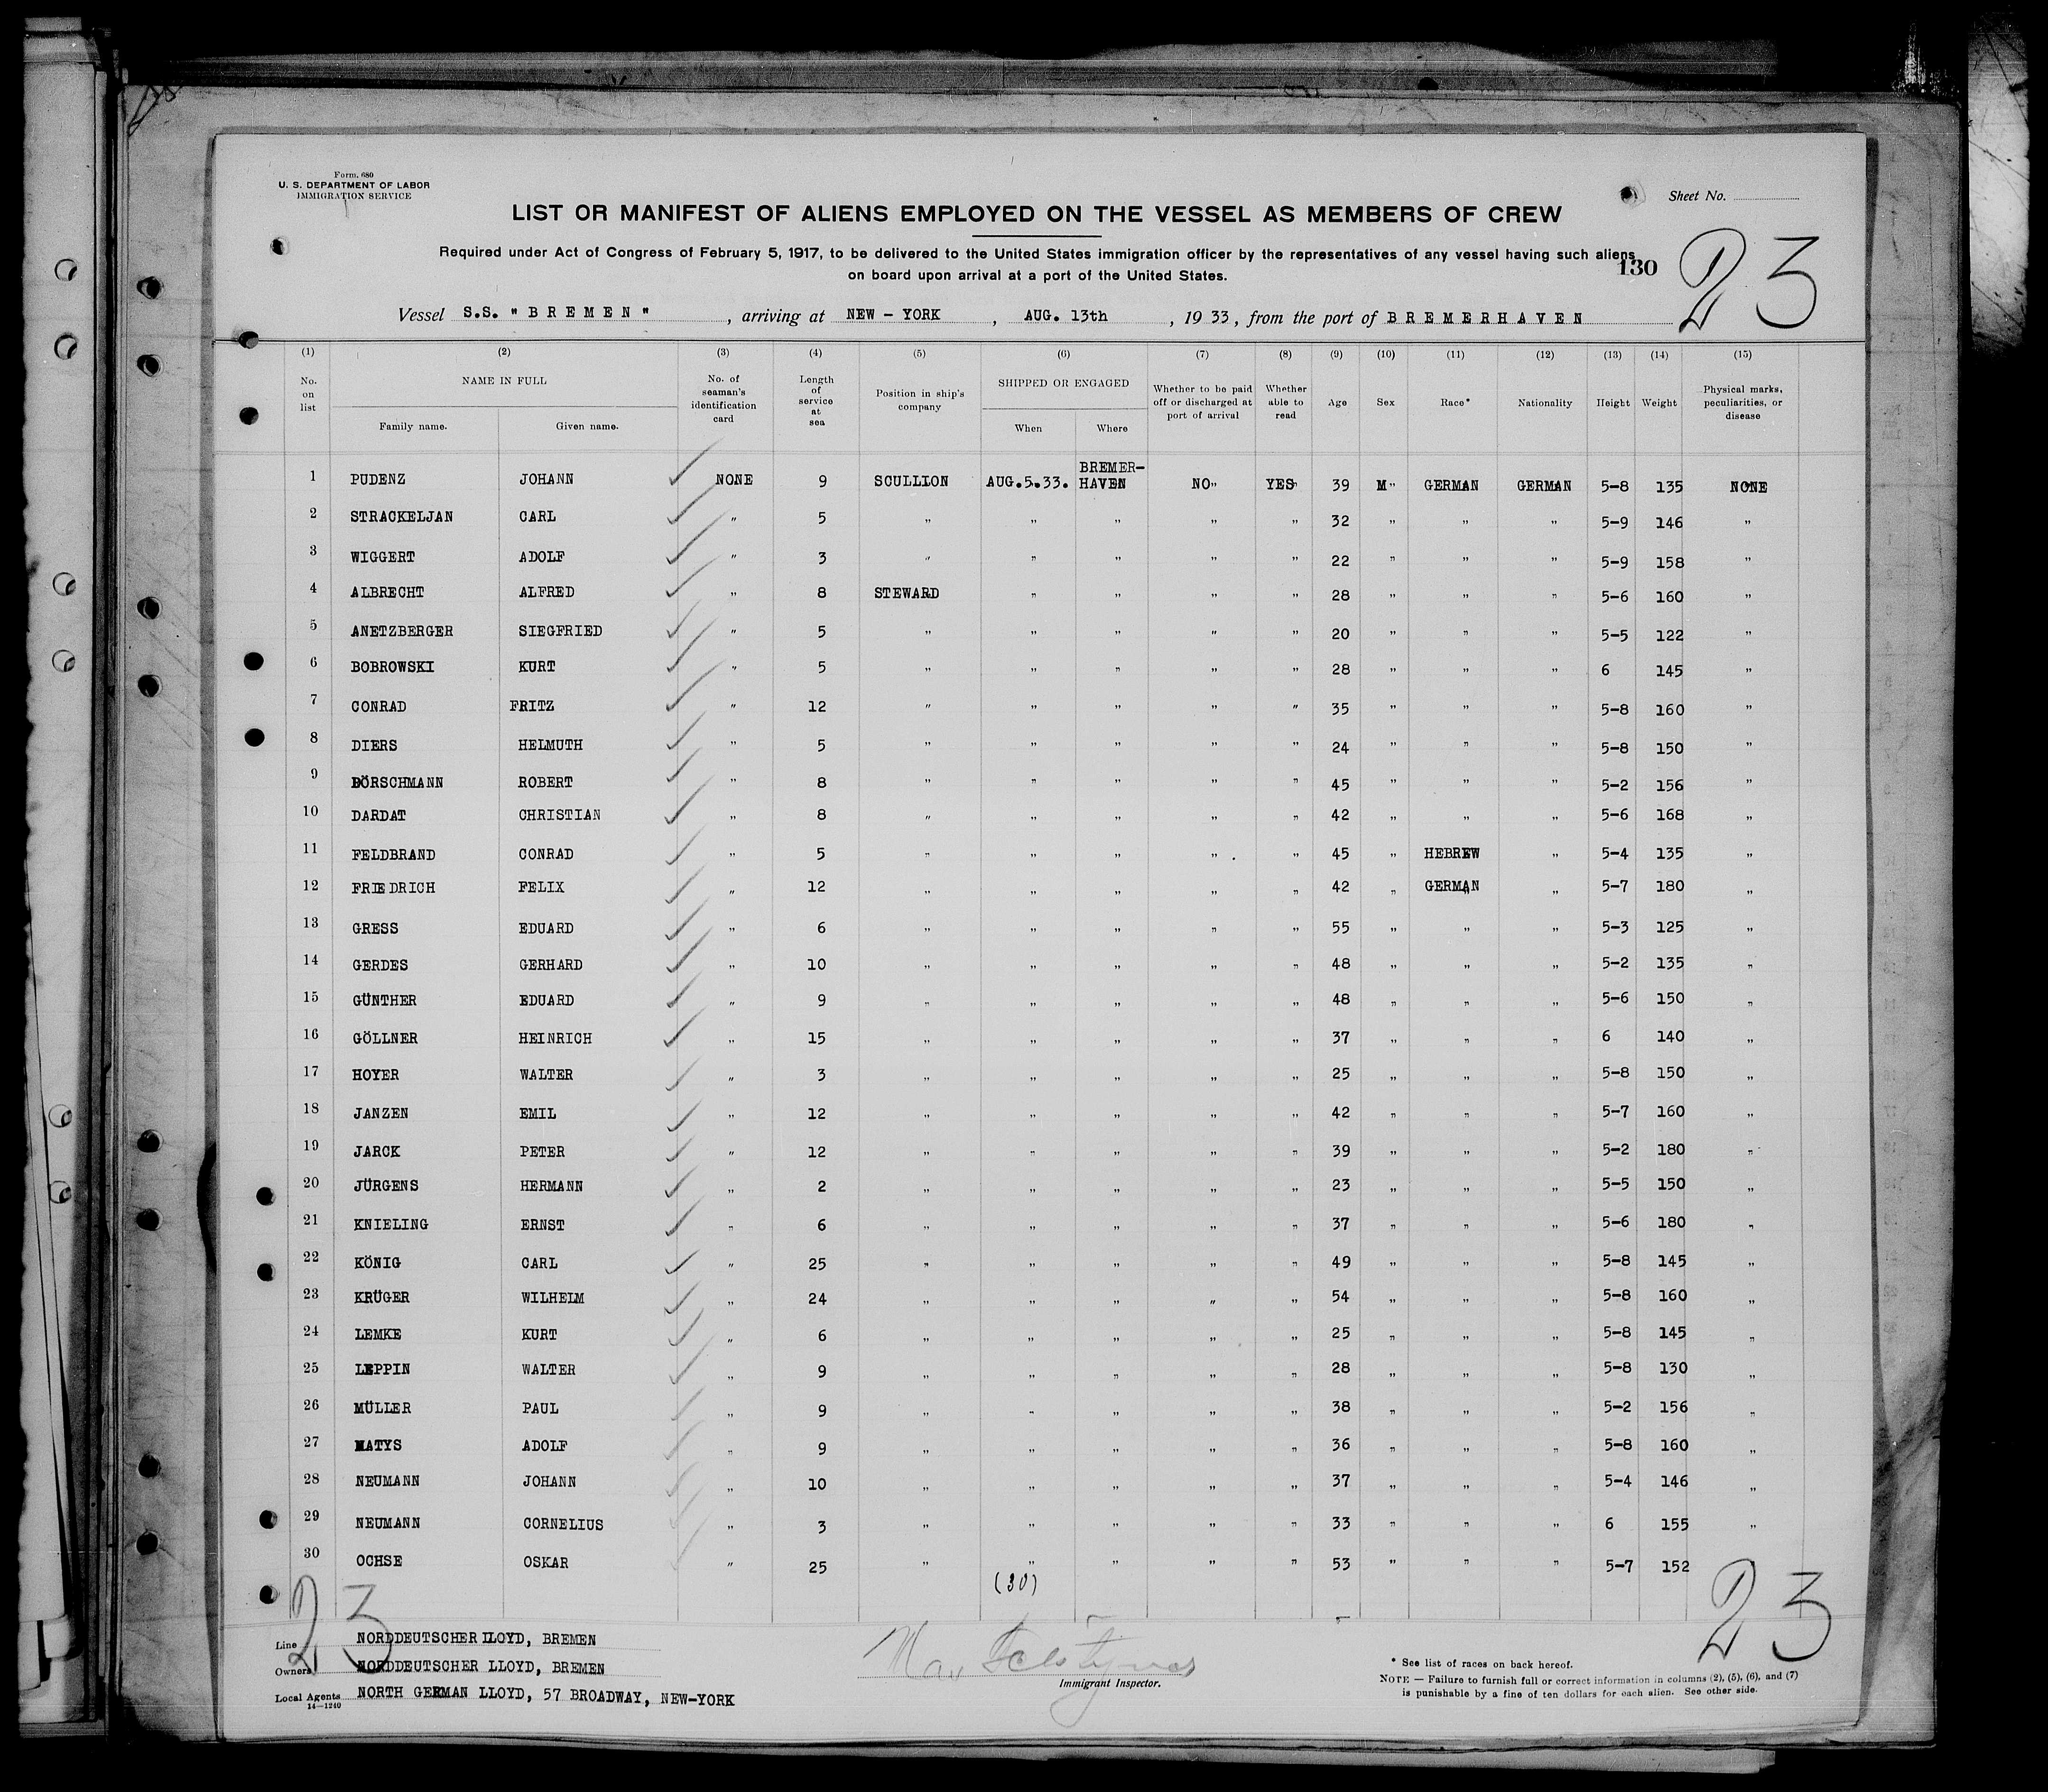 Form. 680
U. S. DEPARTMENT OF LABOR
IMMIGRATION SERVICE
Sheet No.
LIST OR MANIFEST OF ALIENS EMPLOYED ON THE VESSEL AS MEMBERS OF CREW
Required under Act of Congress of February 5, 1917, to be delivered to the United States immigration officer by the representatives of any vessel having such aliens
on board upon arrival at a port of the United States.
130
23
Vessel S.S. "BREMEN", arriving at NEW-YORK, AUG. 13th, 1933, from the port of BREMERHAVEN
(1) (2) (3) (4) (5) (6) (7) (8) (9) (10) (11) (12) (13) (14) (15)
No. on list NAME IN FULL Family name. Given name. No. of seaman's identification card Length of service at sea Position in ship's company SHIPPED OR ENGAGED When Where Whether to be paid off or discharged at port of arrival Whether able to read Age Sex Race* Nationality Height Weight Physical marks, peculiarities, or disease
1 PUDENZ JOHANN NONE 9 SCULLION AUG.5.33. BREMER-HAVEN NO YES 39 M GERMAN GERMAN 5-8 135 NONE
2 STRACKELJAN CARL " 5 " " " " " 32 " " " 5-9 146 "
3 WIGGERT ADOLF " 3 " " " " " 22 " " " 5-9 158 "
4 ALBRECHT ALFRED " 8 STEWARD " " " " 28 " " " 5-6 160 "
5 ANETZBERGER SIEGFRIED " 5 " " " " " 20 " " " 5-5 122 "
6 BOBROWSKI KURT " 5 " " " " " 28 " " " 6 145 "
7 CONRAD FRITZ " 12 " " " " " 35 " " " 5-8 160 "
8 DIERS HELMUTH " 5 " " " " " 24 " " " 5-8 150 "
9 DÖRSCHMANN ROBERT " 8 " " " " " 45 " " " 5-2 156 "
10 DARDAT CHRISTIAN " 8 " " " " " 42 " " " 5-6 168 "
11 FELDBRAND CONRAD " 5 " " " " " 45 " HEBREW " 5-4 135 "
12 FRIEDRICH FELIX " 12 " " " " " 42 " GERMAN " 5-7 180 "
13 GRESS EDUARD " 6 " " " " " 55 " " " 5-3 125 "
14 GERDES GERHARD " 10 " " " " " 48 " " " 5-2 135 "
15 GÜNTHER EDUARD " 9 " " " " " 48 " " " 5-6 150 "
16 GÖLLNER HEINRICH " 15 " " " " " 37 " " " 6 140 "
17 HOYER WALTER " 3 " " " " " 25 " " " 5-8 150 "
18 JANZEN EMIL " 12 " " " " " 42 " " " 5-7 160 "
19 JARCK PETER " 12 " " " " " 39 " " " 5-2 180 "
20 JÜRGENS HERMANN " 2 " " " " " 23 " " " 5-5 150 "
21 KNIELING ERNST " 6 " " " " " 37 " " " 5-6 180 "
22 KÖNIG CARL " 25 " " " " " 49 " " " 5-8 145 "
23 KRÜGER WILHELM " 24 " " " " " 54 " " " 5-8 160 "
24 LEMKE KURT " 6 " " " " " 25 " " " 5-8 145 "
25 LEPPIN WALTER " 9 " " " " " 28 " " " 5-8 130 "
26 MÜLLER PAUL " 9 " " " " " 38 " " " 5-2 156 "
27 MATYS ADOLF " 9 " " " " " 36 " " " 5-8 160 "
28 NEUMANN JOHANN " 10 " " " " " 37 " " " 5-4 146 "
29 NEUMANN CORNELIUS " 3 " " " " " 33 " " " 6 155 "
30 OCHSE OSKAR " 25 " " " " " 53 " " " 5-7 152
(30)
23
23
Line NORDDEUTSCHER LLOYD, BREMEN
Owners NORDDEUTSCHER LLOYD, BREMEN
Local Agents NORTH GERMAN LLOYD, 57 BROADWAY, NEW-YORK
14-1240
Immigrant Inspector.
* See list of races on back hereof.
NOTE — Failure to furnish full or correct information in columns (2), (5), (6), and (7)
is punishable by a fine of ten dollars for each alien. See other side.